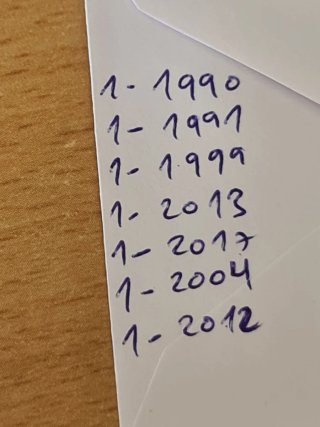 1- 1990
1- 1991
1- 1999
1- 2013
1- 2017
1- 2004
1- 2012